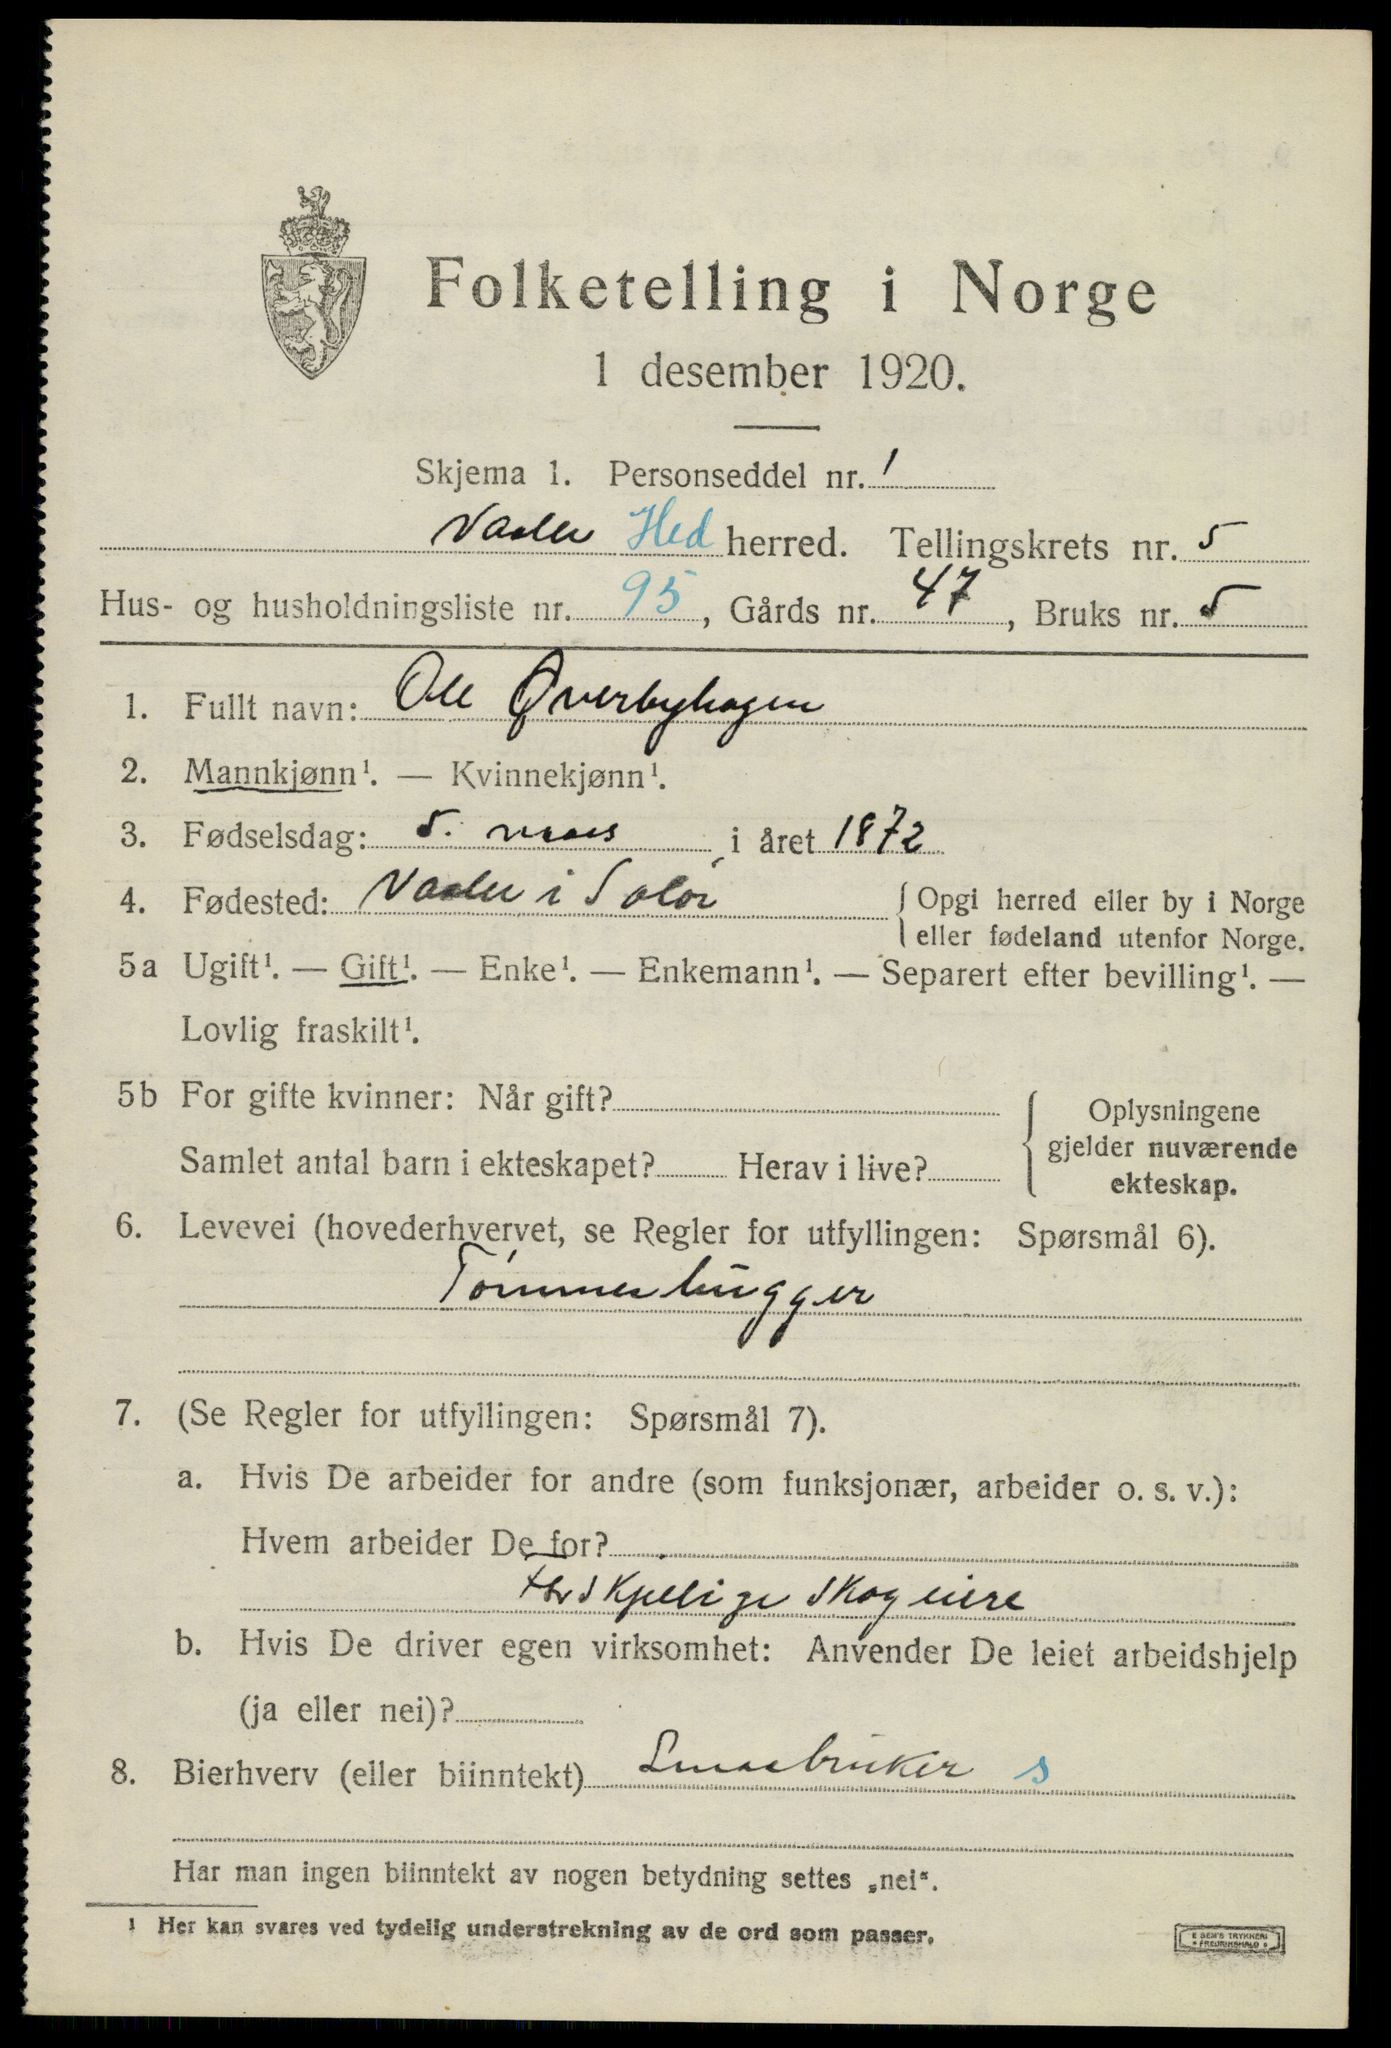 Folketelling i Norge
1 desember 1920.
Skjema 1. Personseddel nr. 1
Vaaler Hed herred. Tellingskrets nr. 5
Hus- og husholdningsliste nr. 95, Gårds nr. 47, Bruks nr. 5
1. Fullt navn: Ole Øverbyhagen
2. Mannkjønn¹. — Kvinnekjønn¹.
3. Fødselsdag: 5. mars i året 1872
4. Fødested: Vaaler i Solør { Opgi herred eller by i Norge
eller fødeland utenfor Norge.
5a Ugift¹. — Gift¹. — Enke¹. — Enkemann¹. — Separert efter bevilling¹. —
Lovlig fraskilt¹.
5b For gifte kvinner: Når gift?
Samlet antal barn i ekteskapet? Herav i live?
Oplysningene
gjelder nuværende
ekteskap.
6. Levevei (hovederhvervet, se Regler for utfyllingen: Spørsmål 6).
Tømmerhugger
7. (Se Regler for utfyllingen: Spørsmål 7).
a. Hvis De arbeider for andre (som funksjonær, arbeider o. s. v.):
Hvem arbeider De for?
Forskjelige skogeiere
b. Hvis De driver egen virksomhet: Anvender De leiet arbeidshjelp
(ja eller nei)?
8. Bierhverv (eller biinntekt) Smaabruker s
Har man ingen biinntekt av nogen betydning settes „nei“.
¹ Her kan svares ved tydelig understrekning av de ord som passer.
E SEM'S TRYKKERI
FREDRIKSHALD